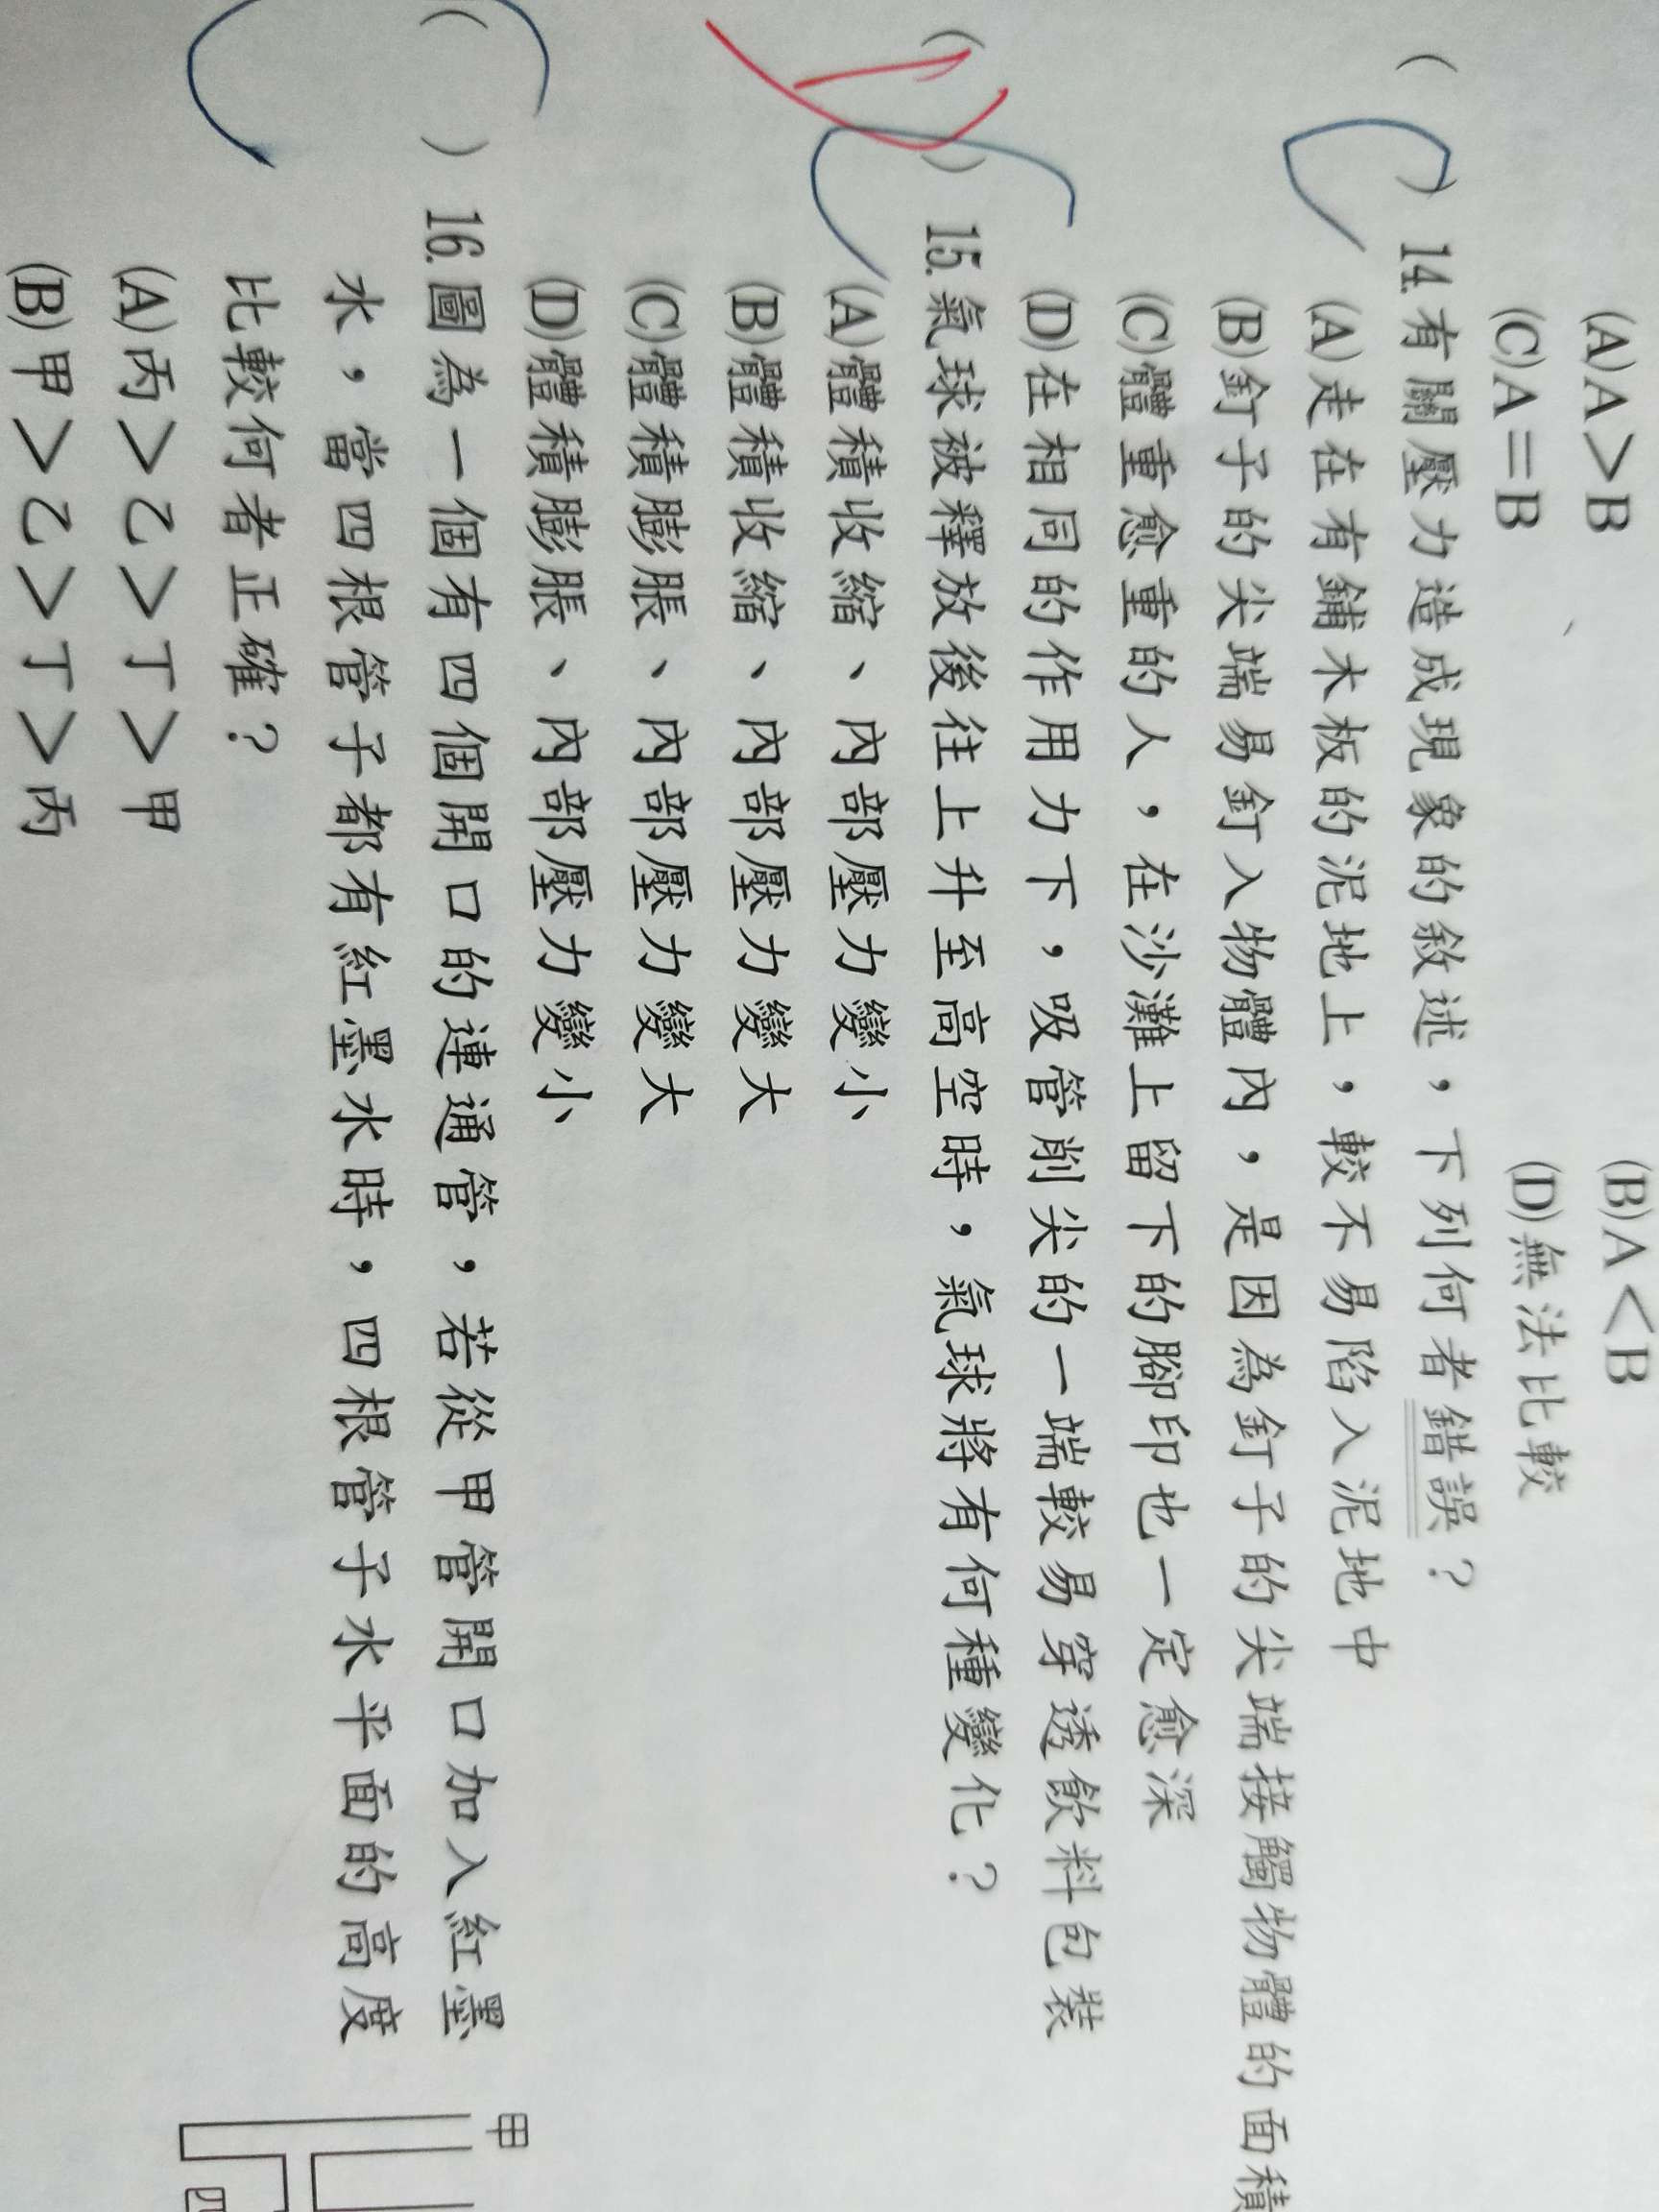 (A)A＞B (B)A＜B
(C)A＝B (D)無法比較
( C ) 14.有關壓力造成現象的敘述，下列何者錯誤？
(A)走在有鋪木板的泥地上，較不易陷入泥地中
(B)釘子的尖端易釘入物體內，是因為釘子的尖端接觸物體的面積
(C)體重愈重的人，在沙灘上留下的腳印也一定愈深
(D)在相同的作用力下，吸管削尖的一端較易穿透飲料包裝
( C D ) 15.氣球被釋放後往上升至高空時，氣球將有何種變化？
(A)體積收縮、內部壓力變小
(B)體積收縮、內部壓力變大
(C)體積膨脹、內部壓力變大
(D)體積膨脹、內部壓力變小
( C ) 16.圖為一個有四個開口的連通管，若從甲管開口加入紅墨
水，當四根管子都有紅墨水時，四根管子水平面的高度
比較何者正確？
甲
(A)丙＞乙＞丁＞甲
(B)甲＞乙＞丁＞丙